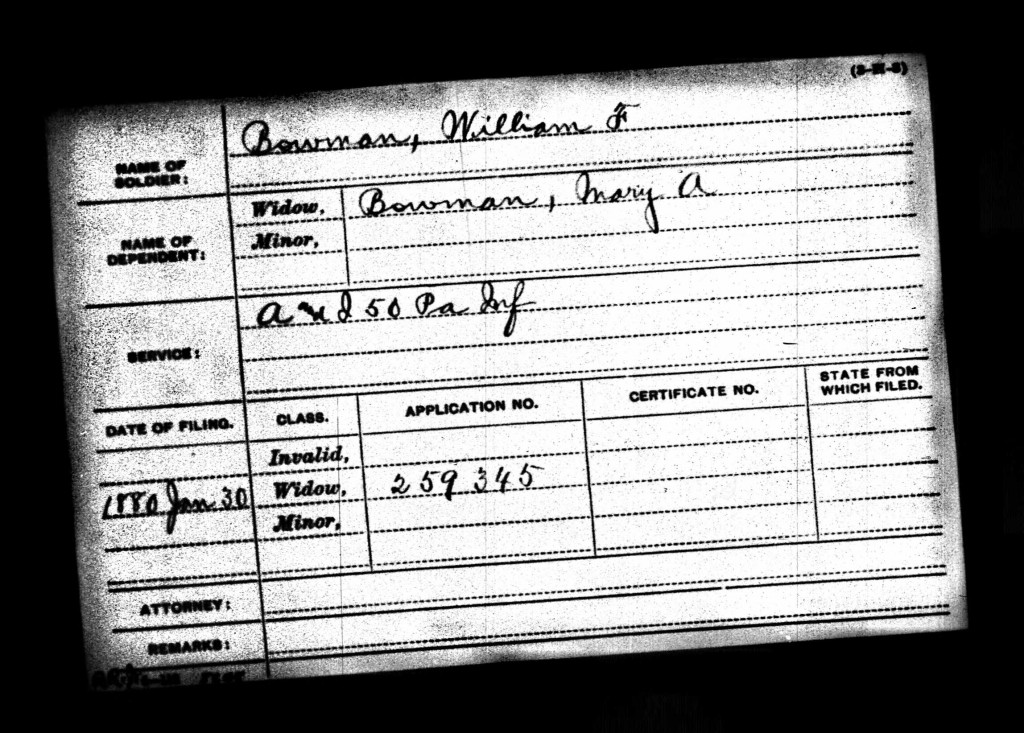 NAME OF SOLDIER: Bowman, William F
NAME OF DEPENDENT: Widow, Bowman, Mary A
Minor,
SERVICE: A and I 50 Pa Inf
DATE OF FILING. CLASS. APPLICATION NO. CERTIFICATE NO. STATE FROM WHICH FILED.
Invalid,
1880 Jan 30 Widow, 259 345
Minor,
ATTORNEY:
REMARKS: